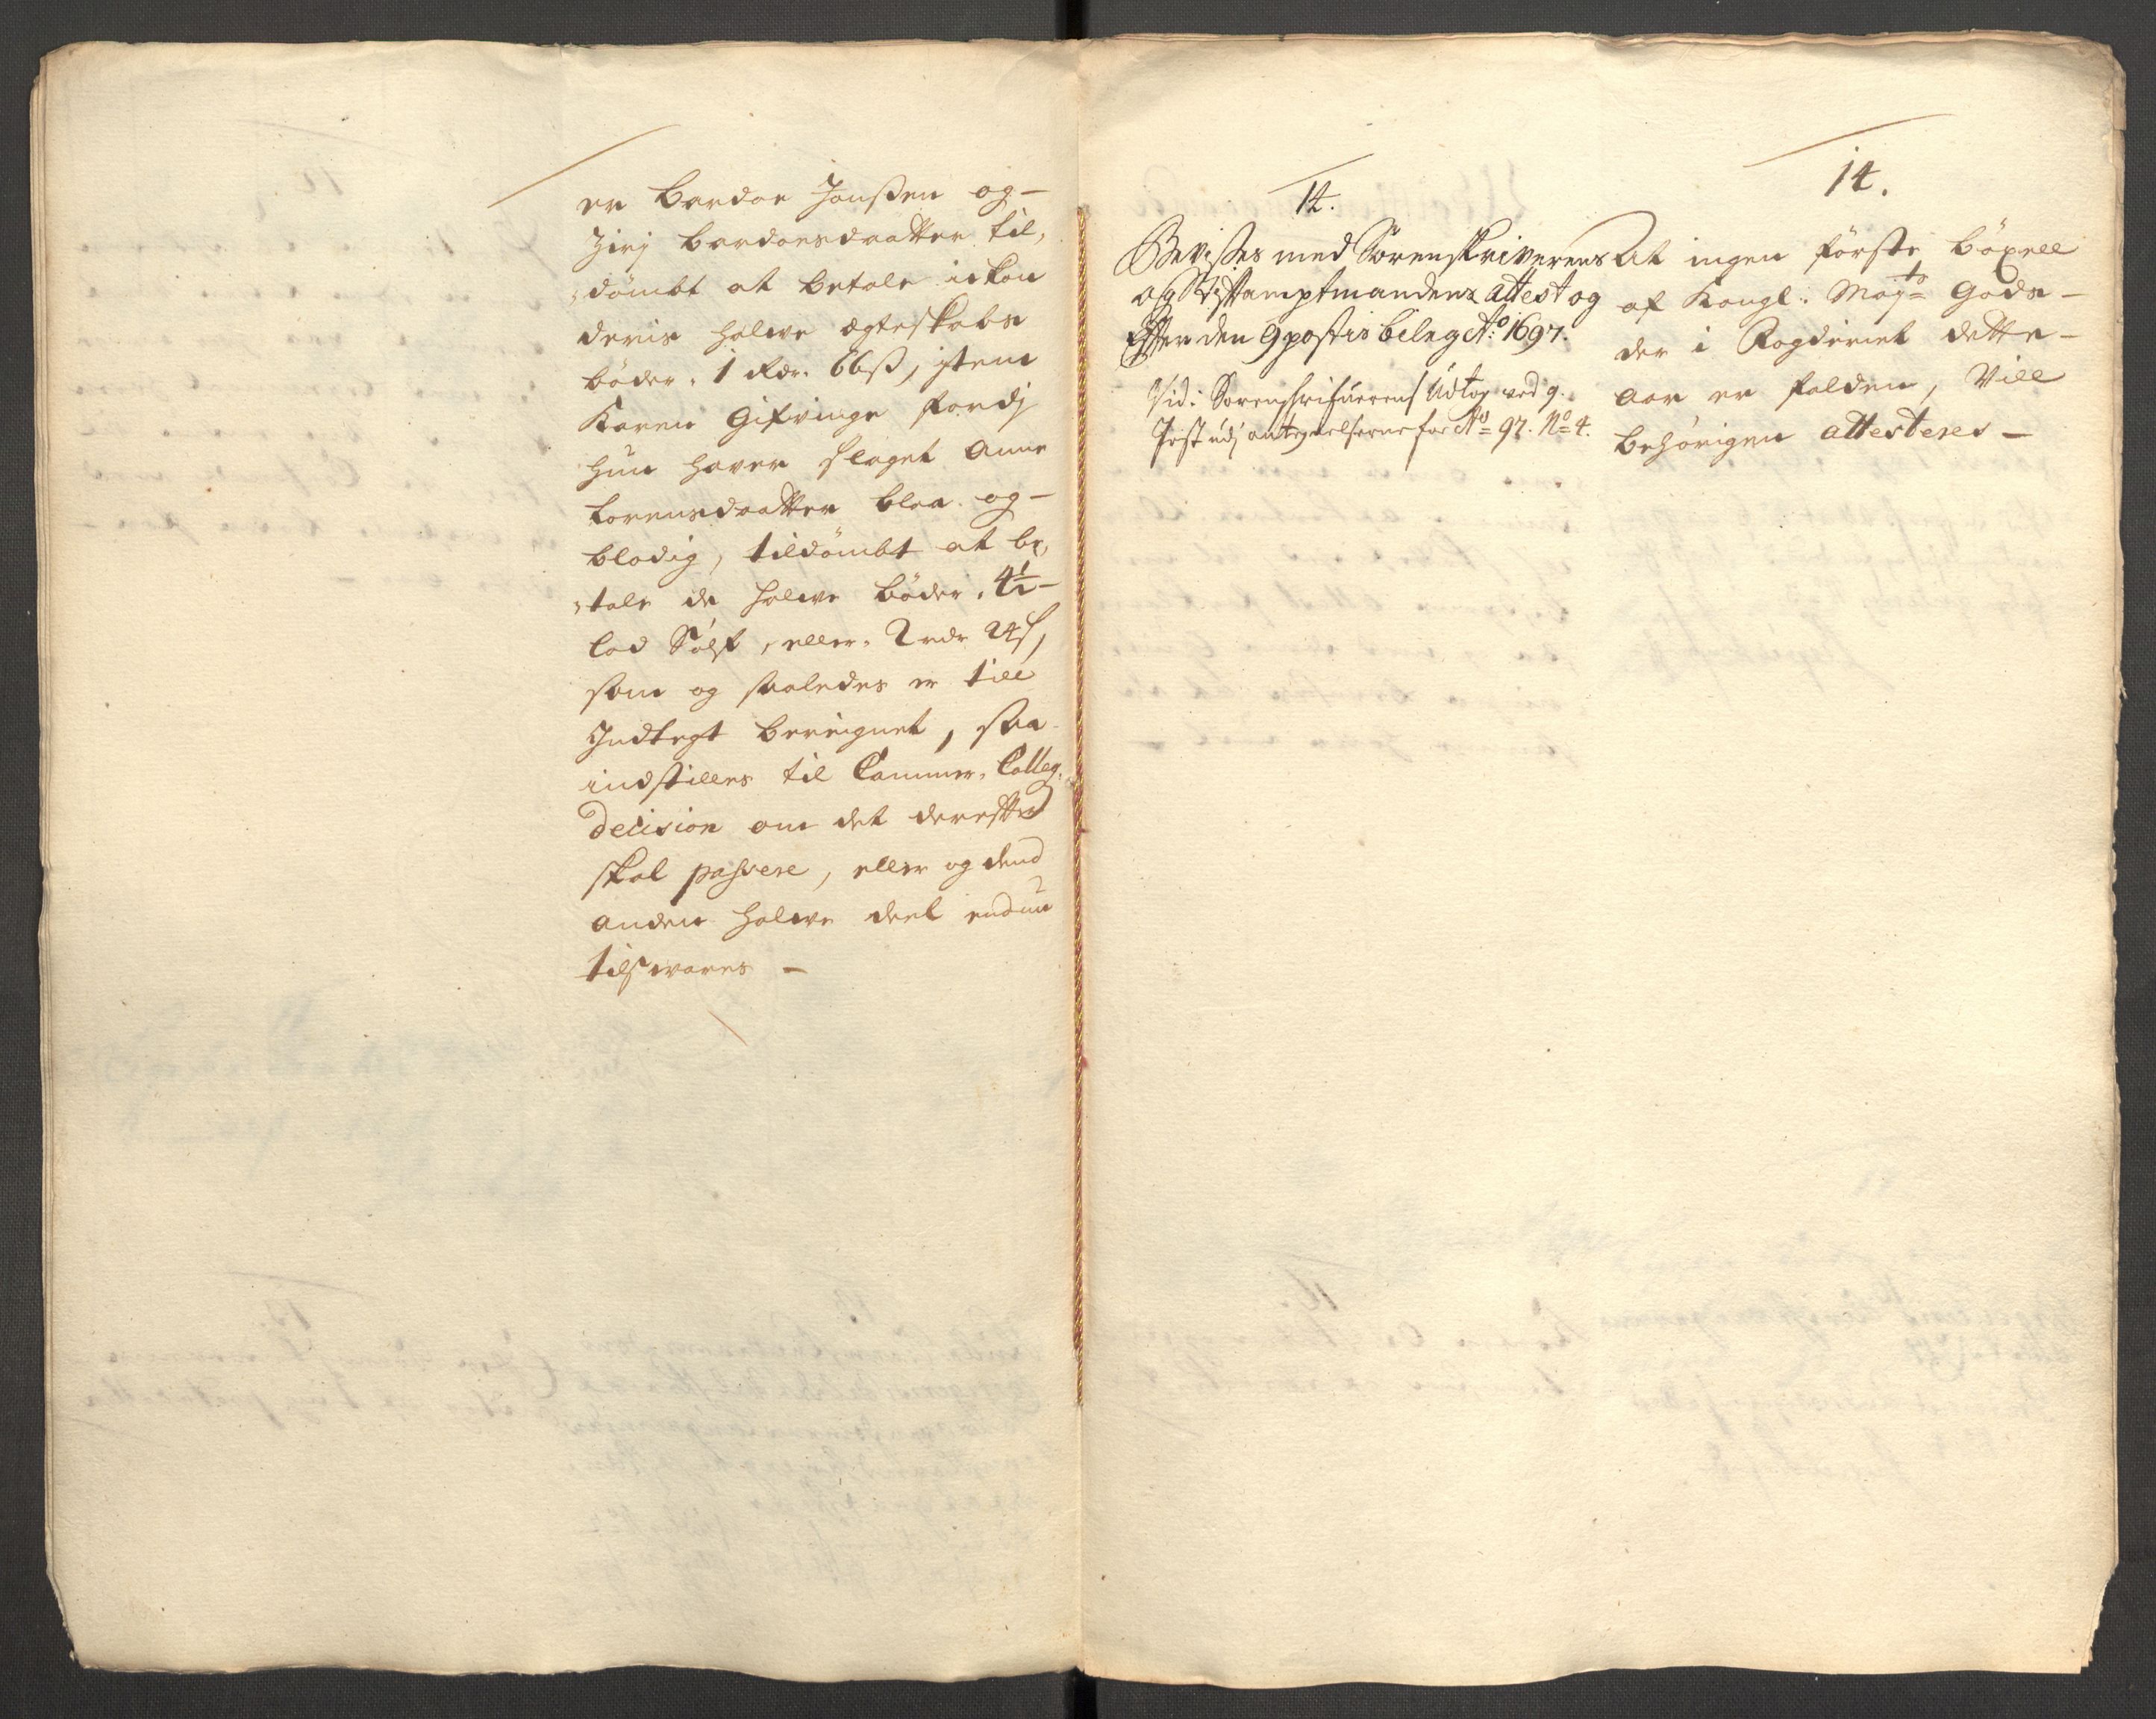 er Bardon Jonssen og -
Zirj Bardonsdaatter til,
dömbt at betale ickon
deris halwe ægteskabs
böder. 1 Rdr. 66 ß, jtem
Karen Gifvinge fordj
hun hawer slaget Anne
Lorensdaatter blaa og -
blodig, tildömbt at be,
tale de halwe böder. 4½ -
Lod Sölf, eller. 2 rdr 24 ß,
som og saaledes er till
Indtegt bereignet, saa
indstilles til Cammer. Colleg.
Decision om det derefter
skal passere, eller og dend
anden halwe deel endnu
tilswares -
14.
Bevisses med Sorenskriverens
og Stiftamptmandens attest og
Efter den 9 postis bilag Ao. 1697.
Vid: Sorenskrifuerens Udtog ved 9.
Post udj antegnelserne for Ao 97. No 4.
14.
At ingen förste böxell
af Kongl: Mayts Gods -
der i Fogderiet dette -
aar er falden, Vill
behörigen attesteres -